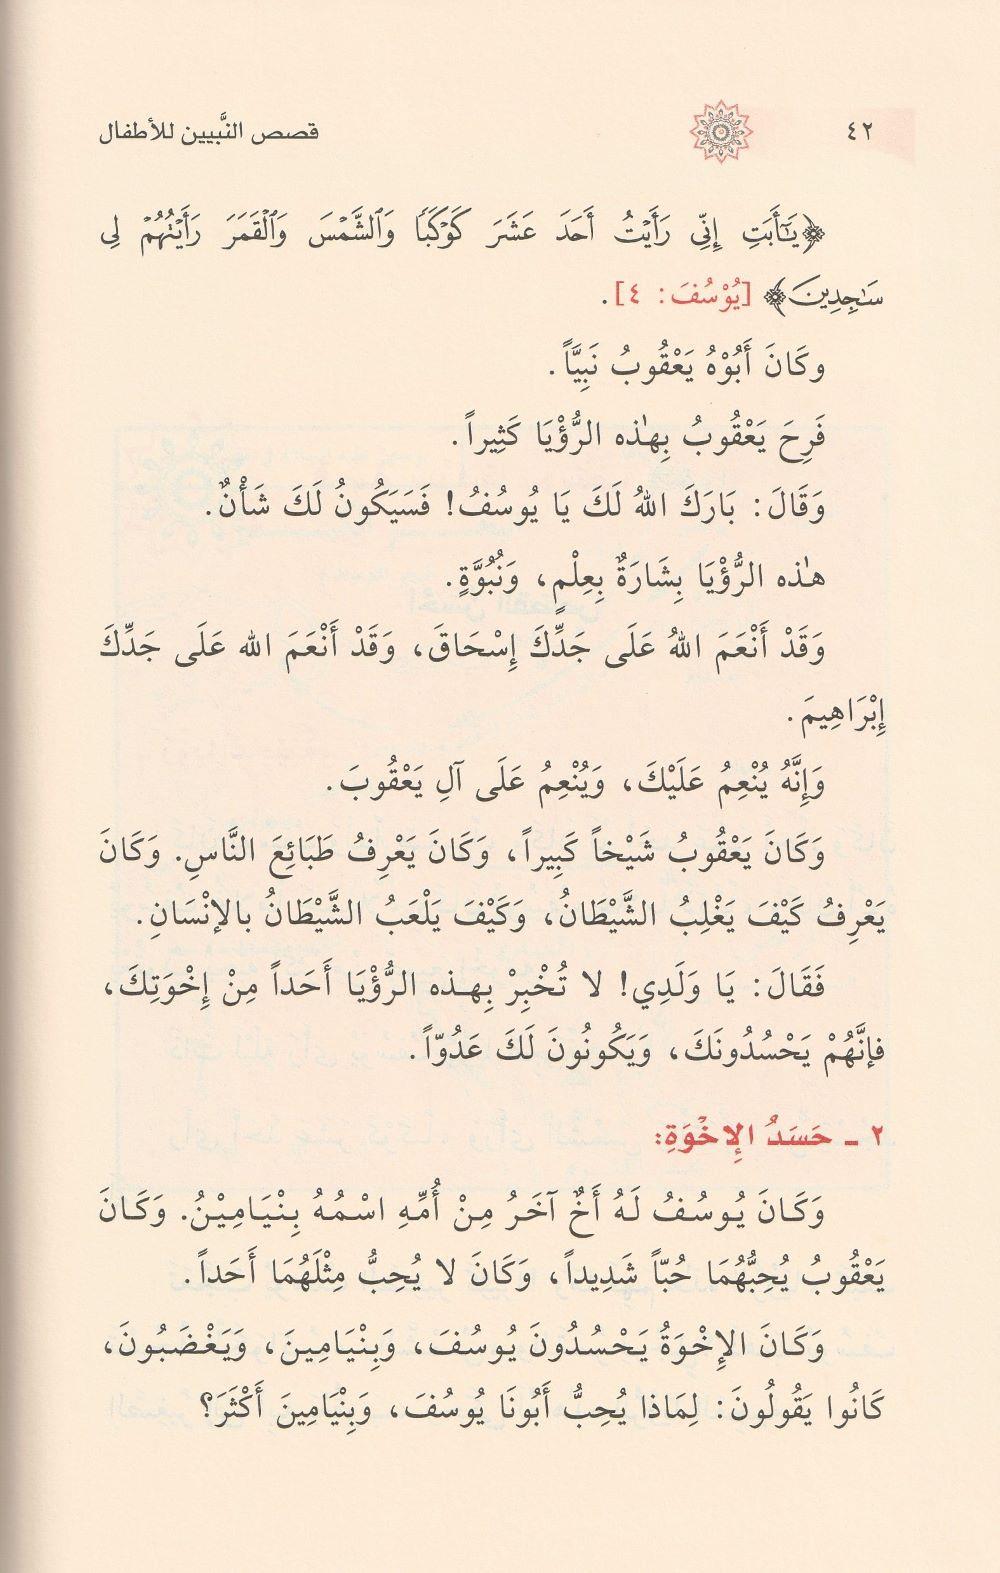 ٤٢ قصص النَّبيين للأطفال
﴿يَٰٓأَبَتِ إِنِّي رَأَيْتُ أَحَدَ عَشَرَ كَوْكَبًا وَٱلشَّمْسَ وَٱلْقَمَرَ رَأَيْتُهُمْ لِي
سَٰجِدِينَ﴾ [يُوْسُفَ: ٤].
وكَانَ أَبُوْهُ يَعْقُوبُ نَبِيَّاً.
فَرِحَ يَعْقُوبُ بِهٰذه الرُّؤْيَا كَثِيراً.
وَقَالَ: بَارَكَ اللهُ لَكَ يَا يُوسُفُ! فَسَيَكُونُ لَكَ شَأْنٌ.
هٰذه الرُّؤْيَا بِشَارَةٌ بِعِلْمٍ، وَنُبُوَّةٍ.
وَقَدْ أَنْعَمَ اللهُ عَلَى جَدِّكَ إِسْحَاقَ، وَقَدْ أَنْعَمَ الله عَلَى جَدِّكَ
إِبْرَاهِيمَ.
وَإِنَّهُ يُنْعِمُ عَلَيْكَ، وَيُنْعِمُ عَلَى آلِ يَعْقُوبَ.
وَكَانَ يَعْقُوبُ شَيْخاً كَبِيراً، وَكَانَ يَعْرِفُ طَبَائِعَ النَّاسِ. وَكَانَ
يَعْرِفُ كَيْفَ يَغْلِبُ الشَّيْطَانُ، وَكَيْفَ يَلْعَبُ الشَّيْطَانُ بالإنْسَانِ.
فَقَالَ: يَا وَلَدِي! لا تُخْبِرْ بِهـذه الرُّؤْيَا أَحَداً مِنْ إِخْوَتِكَ،
فإنَّهُمْ يَحْسُدُونَكَ، وَيَكُونُونَ لَكَ عَدُوّاً.
٢ ـ حَسَدُ الإِخْوَةِ:
وَكَانَ يُوسُفُ لَهُ أَخٌ آخَرُ مِنْ أُمِّهِ اسْمُهُ بِنْيَامِيْنُ. وَكَانَ
يَعْقُوبُ يُحِبُّهُمَا حُبّاً شَدِيداً، وَكَانَ لا يُحِبُّ مِثْلَهُمَا أَحَداً.
وَكَانَ الإِخْوَةُ يَحْسُدُونَ يُوسُفَ، وَبِنْيَامِينَ، وَيَغْضَبُونَ،
كَانُوا يَقُولُونَ: لِمَاذا يُحِبُّ أَبُونَا يُوسُفَ، وَبِنْيَامِينَ أَكْثَرَ؟